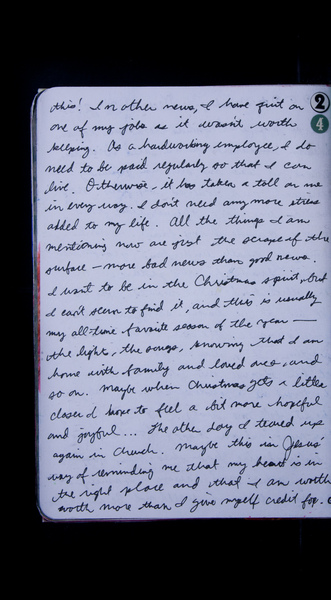 2
4
this! In other news, I have quit on
one of my jobs as it wasn't worth
keeping. As a hardworking employee, I do
need to be paid regularly so that I can
live. Otherwise, it has taken a toll on me
in every way. I don't need any more stress
added to my life. All the things I am
mentioning now are just the scrapes of the
surface — more bad news than good news.
I want to be in the Christmas spirit, but
I can't seem to find it, and this is usually
my all-time favorite season of the year —
the lights, the songs, knowing that I am
home with family and loved ones, and
so on. Maybe when Christmas gets a little
closer I hope to feel a bit more hopeful
and joyful... The other day I teared up
again in church. Maybe this is Jesus
way of reminding me that my heart is in
the right place and that I am worth
worth more than I give myself credit for.